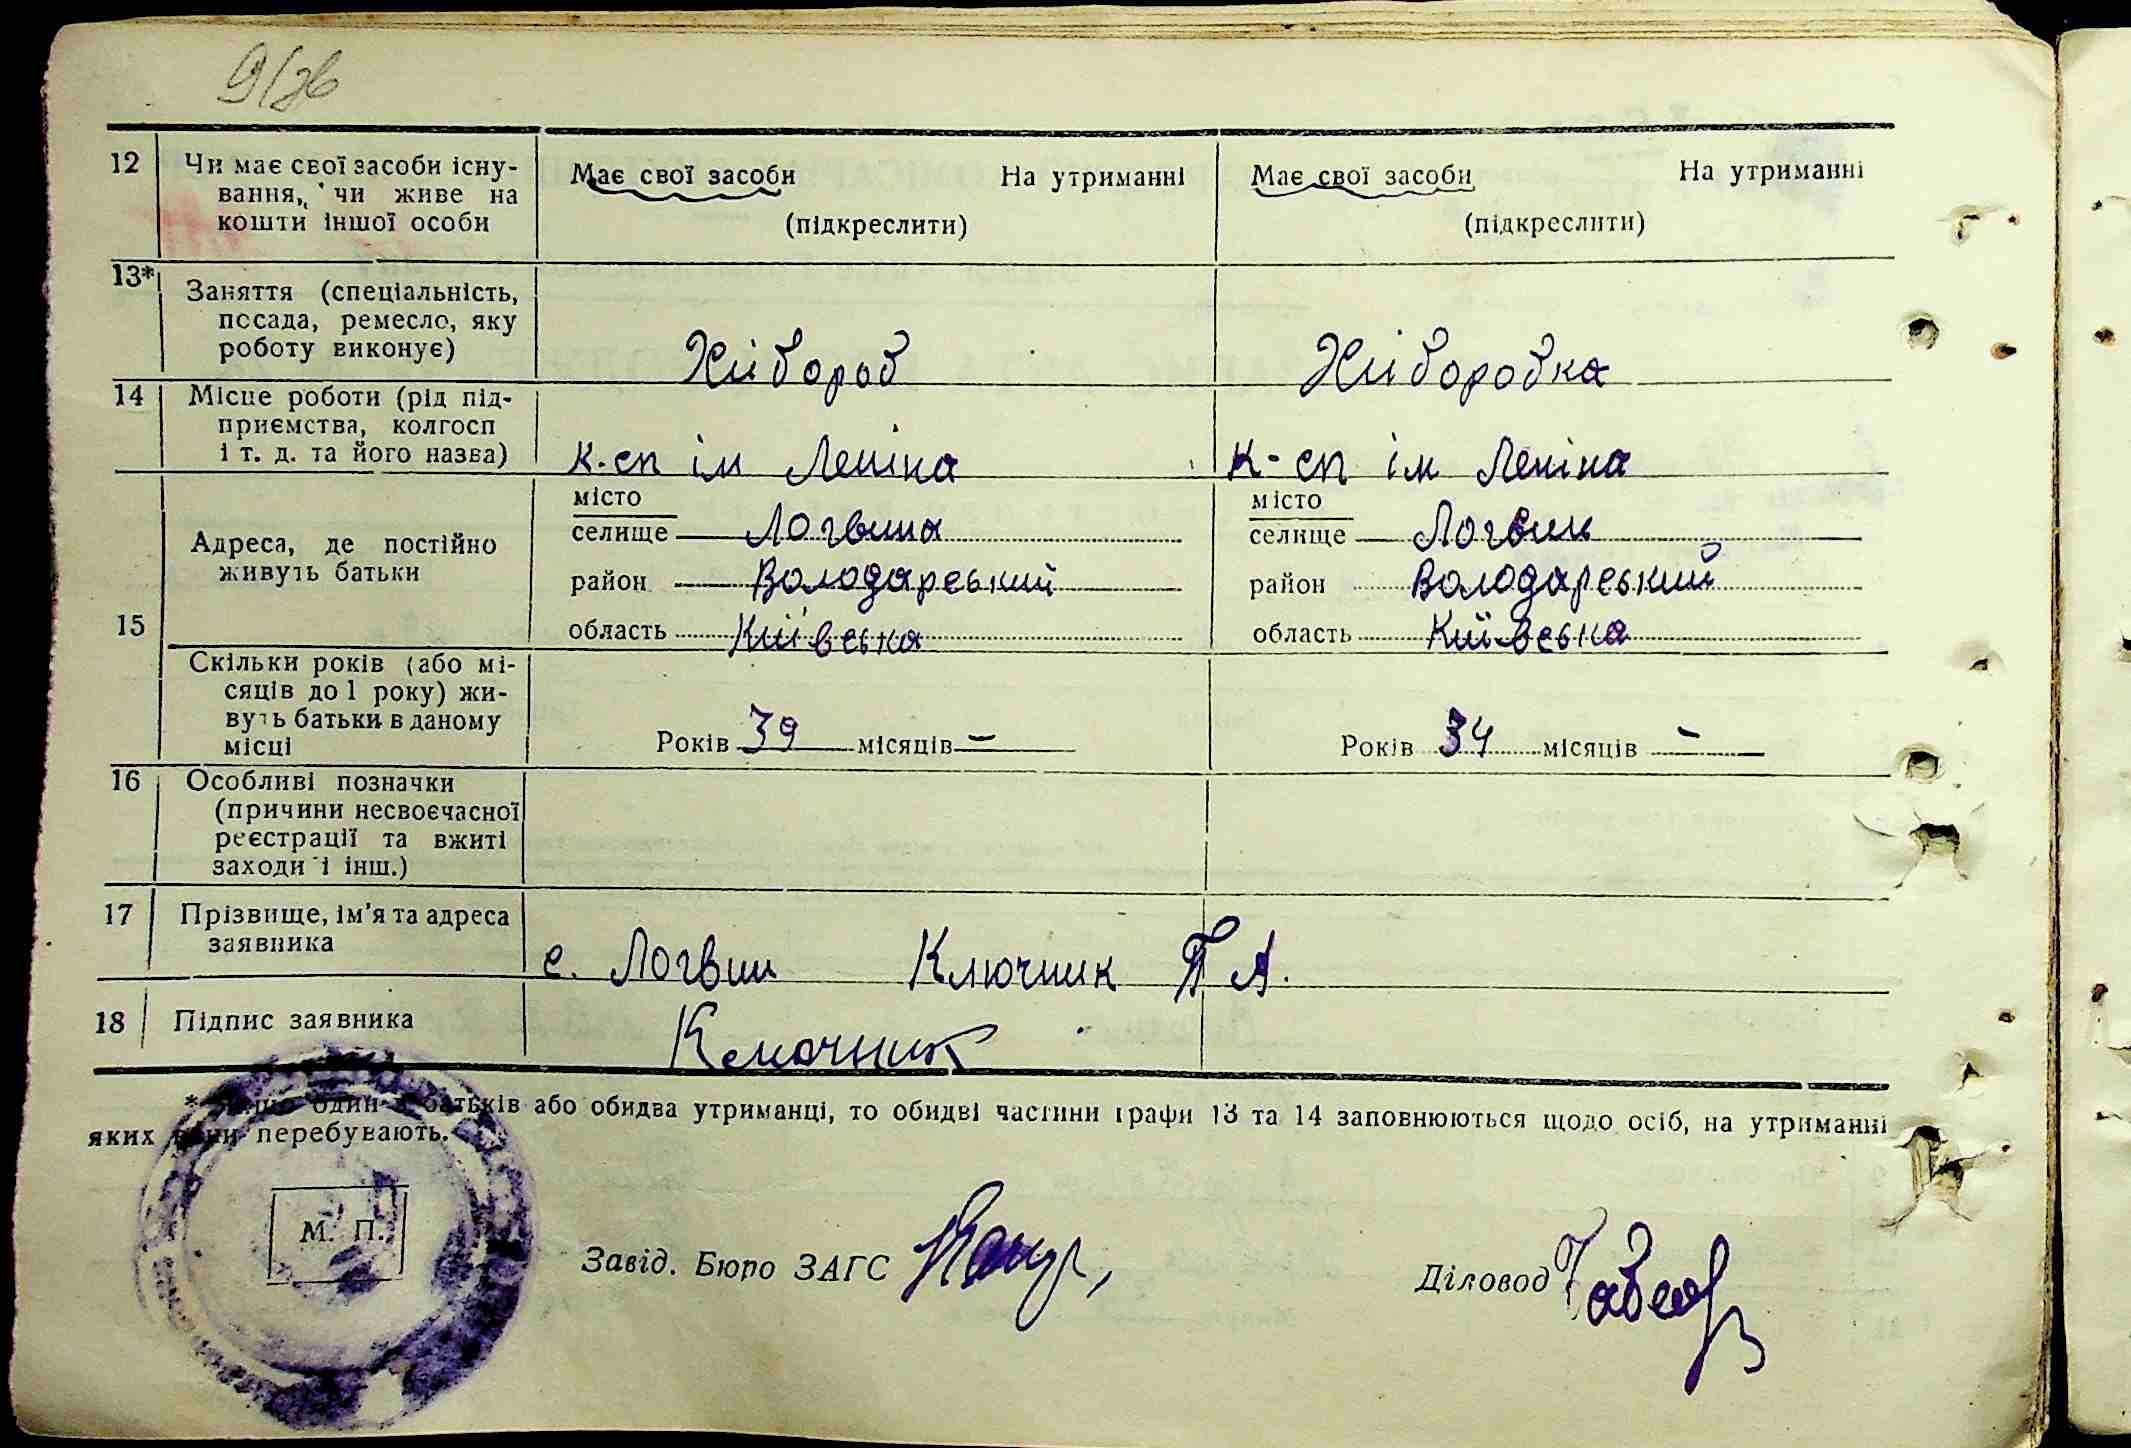 12 Чи має свої засоби існу-
вання, чи живе на
кошти іншої особи
Має свої засоби На утриманні
(підкреслити)
Має свої засоби На утриманні
(підкреслити)
13* Заняття (спеціальність,
посада, ремесло, яку
роботу виконує)
Хлібороб
Хліборобка
14 Місце роботи (рід під-
приємства, колгосп
і т. д. та його назва)
к-сп ім Леніна
к-сп ім Леніна
15
Адреса, де постійно
живуть батьки
місто
селище Логвина
район Володарський
область Київська
місто
селище Логвин
район Володарський
область Київська
Скільки років (або мі-
сяців до 1 року) жи-
вуть батьки в даному
місці
Років 39 місяців –
Років 34 місяців –
16 Особливі позначки
(причини несвоєчасної
реєстрації та вжиті
заходи і інш.)
17 Прізвище, ім'я та адреса
заявника
с. Логвин Ключник П А.
18 Підпис заявника
Ключник
* один з батьків або обидва утриманці, то обидві частини графи 13 та 14 заповнюються щодо осіб, на утриманні
яких вони перебувають.
М. П.
Завід. Бюро ЗАГС
Діловод